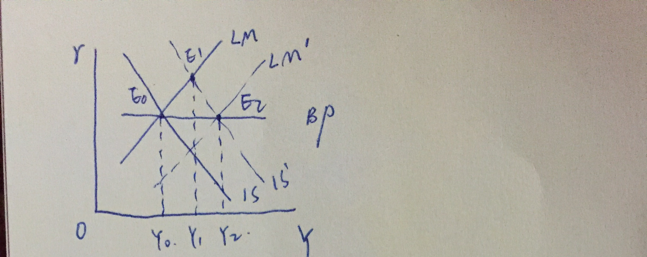 r
E1
LM
LM'
E0
E2
BP
IS
IS'
O
Y0.
Y1
Y2.
Y